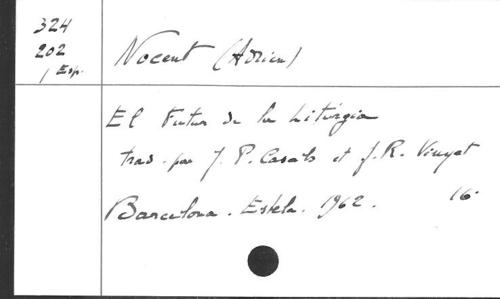 324
202
1 Esp.
Nocent (Adrien)
El Futur de la Litúrgia
trad. par J. P. Casals et J. R. Vinyet
Barcelona. Estela. 1962. 16°